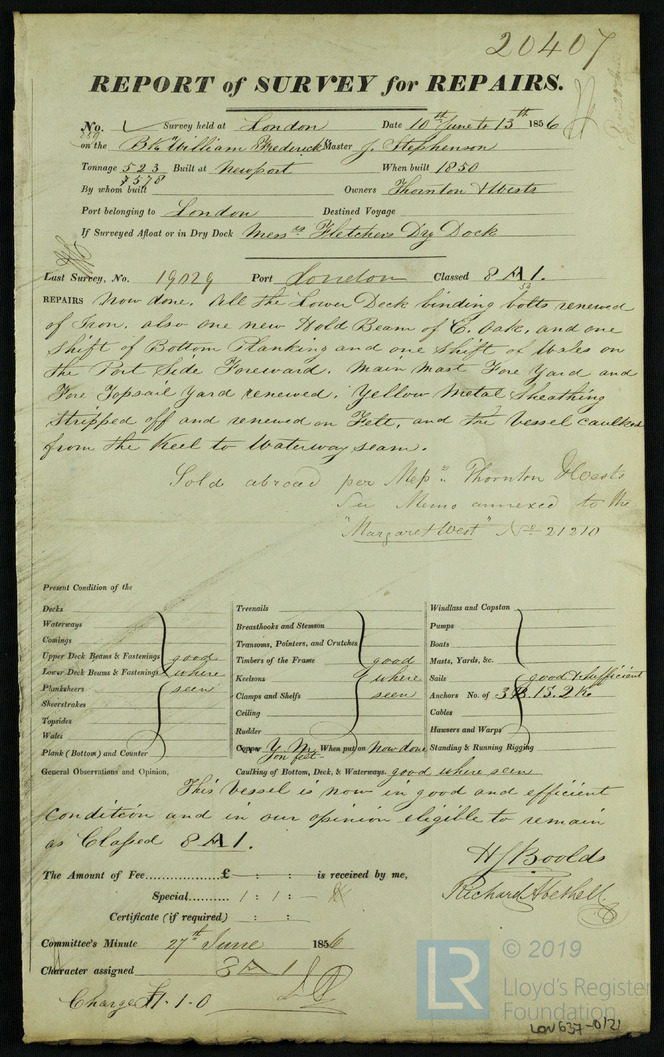 20407
REPORT of SURVEY for REPAIRS.
No. Survey held at London Date 10th June to 13th 1856
on the Bk William Frederick Master J. Stephenson
Tonnage 523 Built at Newport When built 1850
578
By whom built Owners Thornton & Wests
Port belonging to London Destined Voyage
If Surveyed Afloat or in Dry Dock Messrs Fletchers Dry Dock
Last Survey, No. 19029 Port London Classed 8 A 1.
53
REPAIRS Now done. All the Lower Deck binding bolts renewed
of Iron. also one new Hold Beam of E. Oak, and one
Shift of Bottom Planking and one Shift of Wales on
the Port Side Foreward. Main Mast Fore Yard and
Fore Topsail Yard renewed. Yellow Metal Sheathing
Stripped off and renewed on Felt, and the Vessel caulked
from the Keel to Waterway seam.
Sold abroad per Messrs Thornton & Wests
See Memo annexed to the
"Margaret West" No 21210
Present Condition of the
Decks Treenails Windlass and Capstan
Waterways Breasthooks and Stemson Pumps
Comings Transoms, Pointers, and Crutches Boats
Upper Deck Beams & Fastenings good Timbers of the Frame good Masts, Yards, &c.
Lower Deck Beams & Fastenings where Keelsons where Sails good & sufficient
Planksheers seen Clamps and Shelfs seen Anchors No. of 3B. 1S. 2K
Sheerstrakes Ceiling Cables
Topsides Rudder Hawsers and Warps
Wales
Plank (Bottom) and Counter Copper Y. M. on felt When put on Now done Standing & Running Rigging
General Observations and Opinion, Caulking of Bottom, Deck, & Waterways. good where seen
This Vessel is now in good and efficient
condition and in our opinion eligible to remain
as Classed 8 A 1.
H J Boolds
The Amount of Fee......£ - : - : - is received by me,
Richard Abethell
Special.......... 1 : 1 : -
Certificate (if required) : :
Committee's Minute 27th June 1856
Character assigned 8 A 1
Charge £1-1-0
LR © 2019
Lloyd's Register
Foundation
LON637-0121